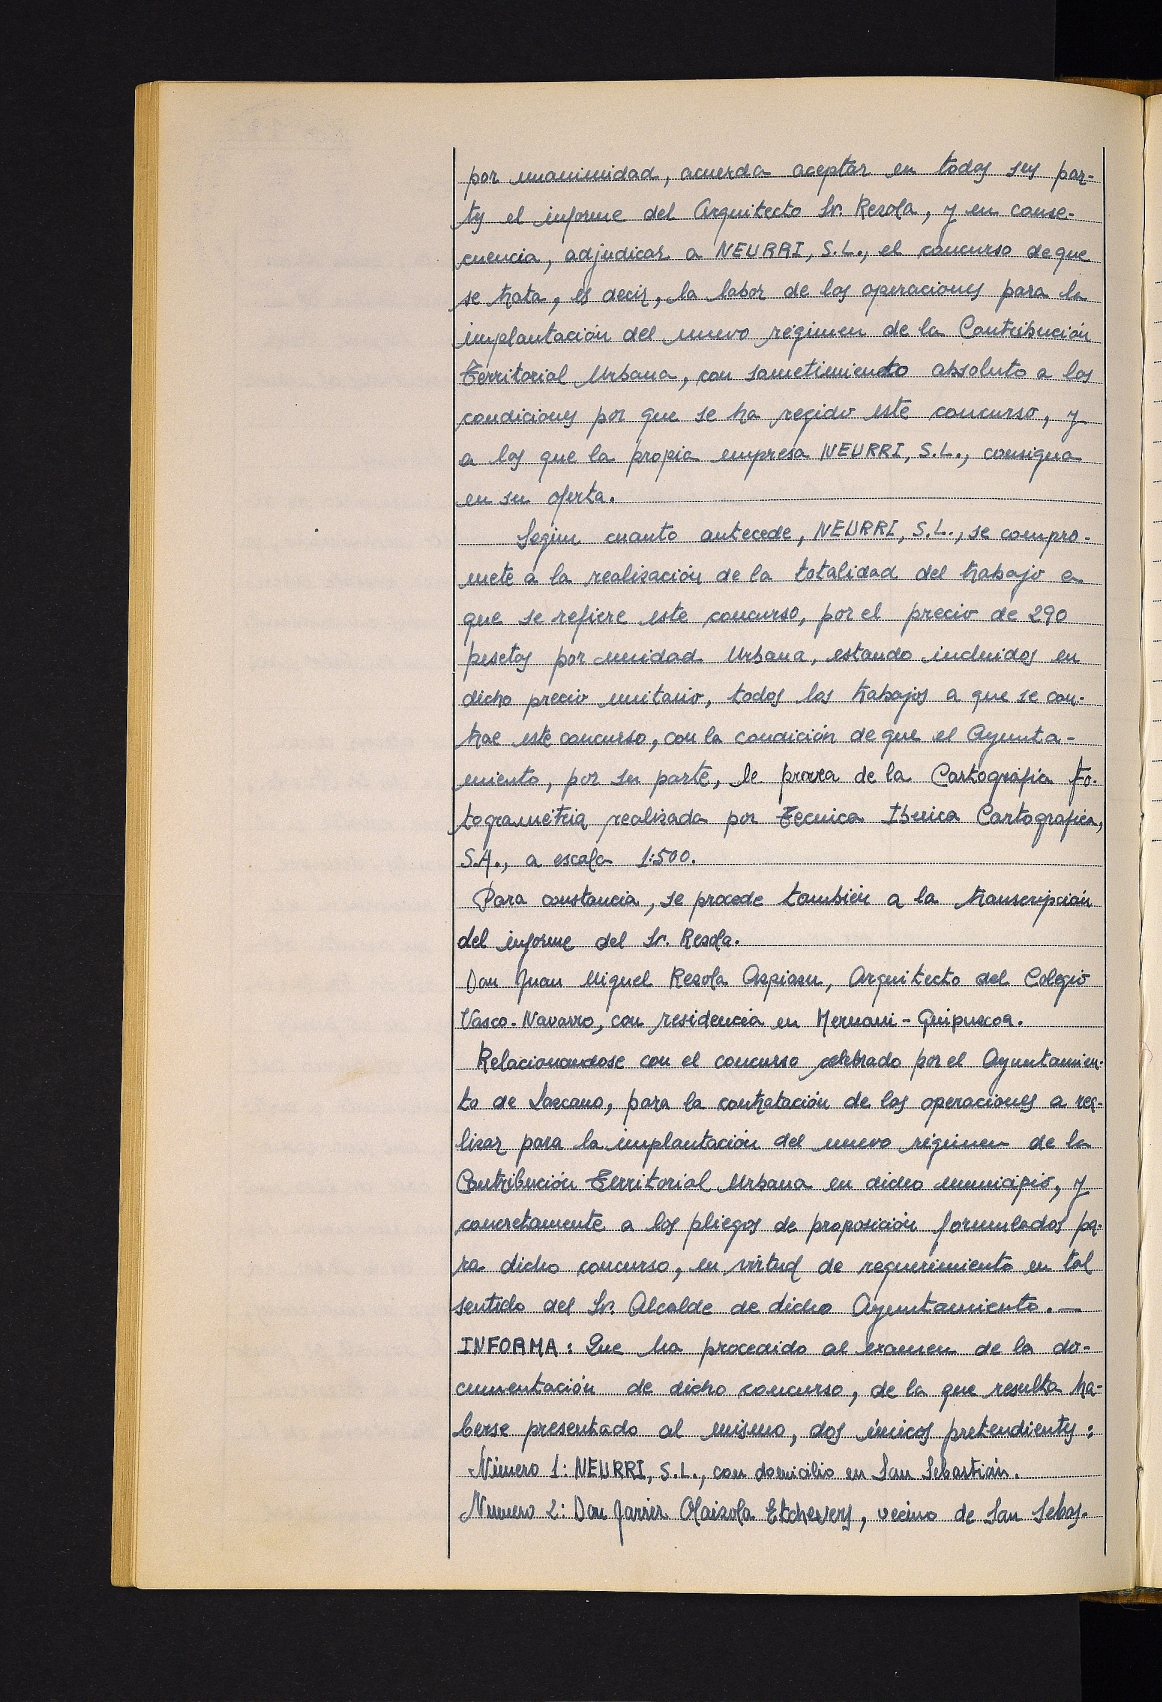 por unanimidad, acuerda aceptar en todas sus par-
tes el informe del Arquitecto Sr. Rezola, y en conse-
cuencia, adjudicar a NEURRI, S.L., el concurso de que
se trata, es decir, la labor de las operaciones para la
implantación del nuevo régimen de la Contribución
Territorial Urbana, con sometimiento absoluto a las
condiciones por que se ha regido este concurso, y
a las que la propia empresa NEURRI, S.L., consigna
en su oferta.
Según cuanto antecede, NEURRI, S.L., se compro-
mete a la realización de la totalidad del trabajo a
que se refiere este concurso, por el precio de 290
pesetas por unidad Urbana, estando incluidos en
dicho precio unitario, todos los trabajos a que se con-
trae este concurso, con la condición de que el Ayunta-
miento, por su parte, le provea de la Cartografía Fo-
togrametria realizada por Tecnica Iberica Cartografica,
S.A., a escala 1:500.
Para constancia, se procede también a la transcripción
del informe del Sr. Rezola.
Don Juan Miguel Rezola Azpiazu, Arquitecto del Colegio
Vasco-Navarro, con residencia en Hernani-Guipuzcoa.
Relacionandose con el concurso celebrado por el Ayuntamien-
to de Lazcano, para la contratación de las operaciones a rea-
lizar para la implantación del nuevo régimen de la
Contribución Territorial Urbana en dicho municipio, y
concretamente a los pliegos de proposición formulados pa-
ra dicho concurso, en virtud de requerimiento en tal
sentido del Sr. Alcalde de dicho Ayuntamiento.—
INFORMA: Que ha procedido al examen de la do-
cumentación de dicho concurso, de la que resulta ha-
berse presentado al mismo, dos únicos pretendientes:
Número 1: NEURRI, S.L., con domicilio en San Sebastián.
Numero 2: Don Javier Olaizola Etcheverry, vecino de San Sebas-